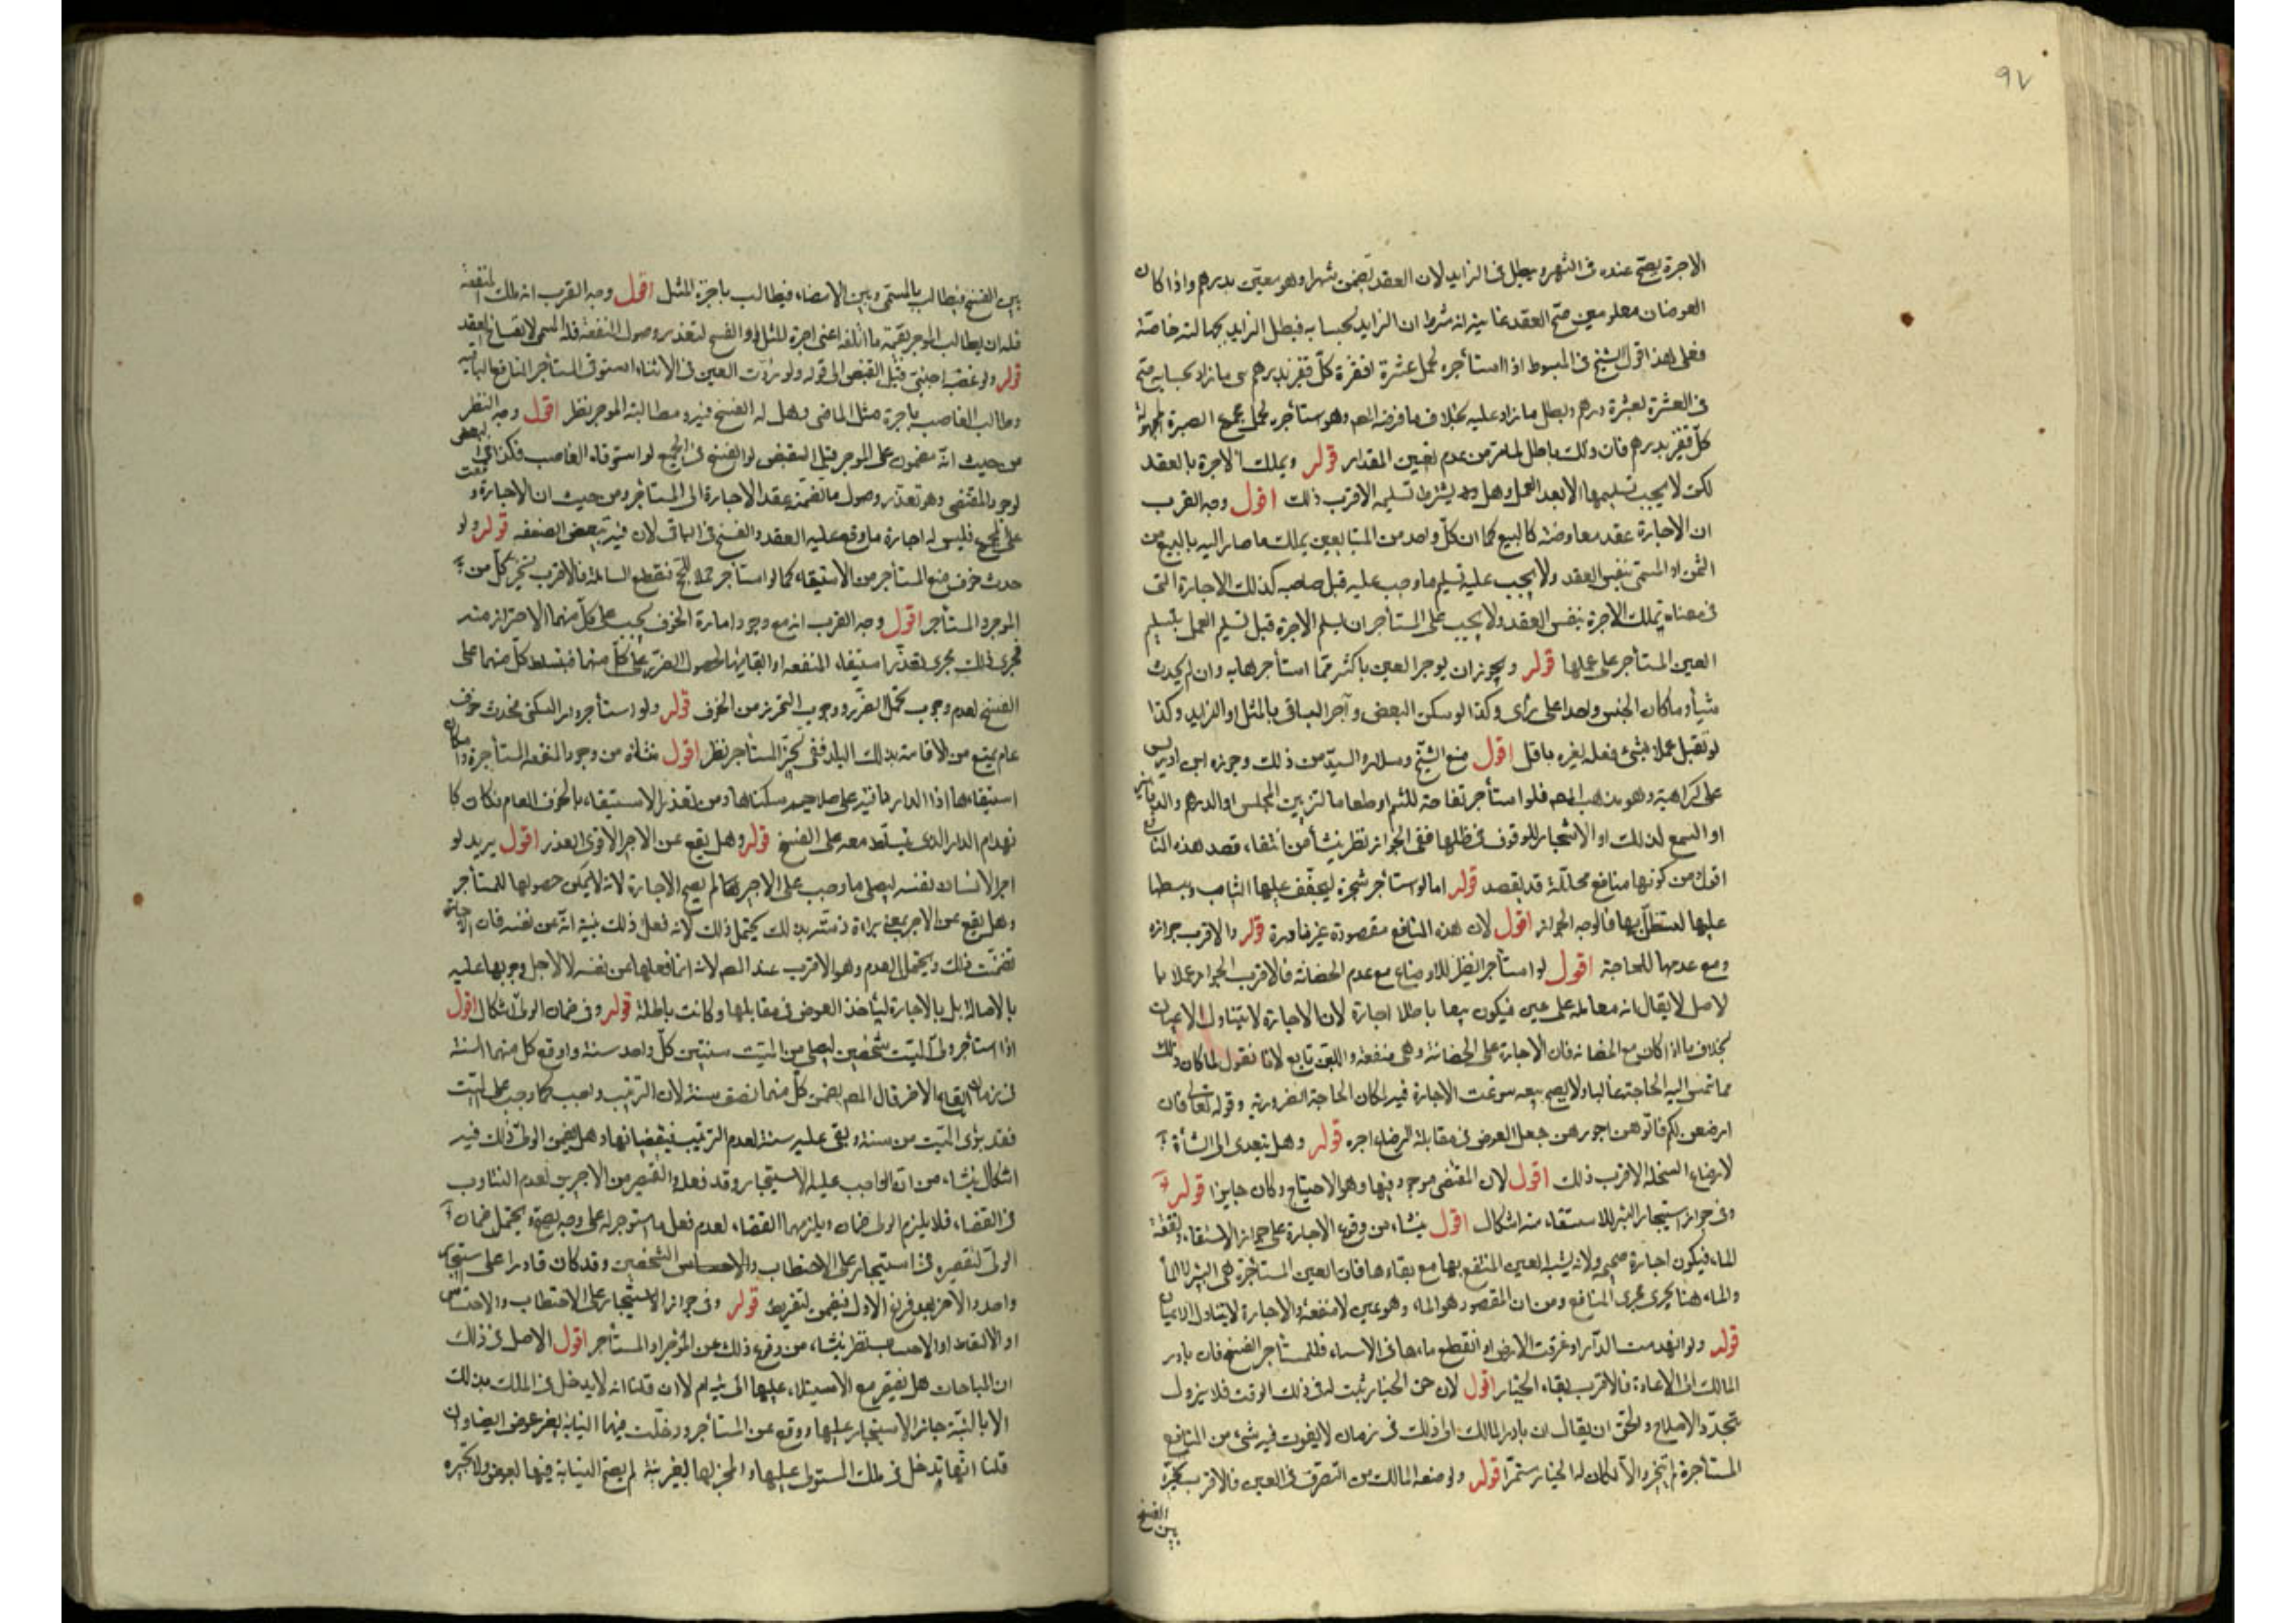 ٩٧
الاجرة يصح عنده فى الشهر ويبطل فى الزايد لان العقد تضمن شهرا وهو معين بدرهم واذا كان
العوضان معلومين صح العقد غايته انه شرط ان الزايد بحسابه فبطل الزايد بجهالته خاصة
فعلى هذا قول الشيخ فى المبسوط اذا استأجره لحمل عشرة اقفزة كل قفيز بدرهم وما زاد بحسابه صح
فى العشرة بعشرة درهم وبطل ما زاد عليه بخلاف ما فرضه المصـ وهو استأجره لحمل جميع الصبرة المجهولة
كل قفيز بدرهم فان ذلك باطل لما مر من عدم تعيين المقدار قوله ويملك الاجرة بالعقد
لكن لا يجب تسليمها الا بعد العمل وهل يشترط تسليمه الاقرب ذلك اقول وجه القرب
ان الاجارة عقد معاوضة كالبيع كما ان كل واحد من المتبايعين يملك ما صار اليه بالبيع من
الثمن او المسمى بنفس العقد ولا يجب عليه تسليم ما وجب عليه قبل صاحبه كذلك الاجارة التى
فى معناه يملك الاجرة بنفس العقد ولا يجب على المستأجر ان يسلم الاجرة قبل تسليم العمل بتسليم
العين المستأجر على عملها قوله ويجوز ان يوجر العين باكثر مما استأجرها به وان لم يحدث
شيأ وما كان الجنس واحدا على رأى وكذا لو سكن البعض وآجر الباقى بالمثل او الزايد وكذا
لو تقبل عملا بشئ فعله بغيره باقل اقول منع الشيخ وسلار والسيد من ذلك وجوزه ابن ادريس
على كراهية وهو مذهب المصـ فلو استأجر تفاحة للشم او طعاما لتزيين المجلس او الدرهم والدنانير
او الشمع لذلك او الاشجار للوقوف فى ظلها ففى الجواز نظر ينشأ من انتفاء قصد هذه المنافع
اقول من كونها منافع محللة قد تقصد قوله اما لو استأجر شجرة ليجفف عليها الثياب ويبسطها
عليها ليستظل بها فالوجه الجواز اقول لان هذه المنافع مقصودة غير نادرة قوله والاقرب جوازه
ومع عدمها للحاجة اقول لو استأجر الظئر للارضاع مع عدم الحضانة فالاقرب الجواز عملا با
لاصل لا يقال انه معاملة على عين فيكون بيعا باطلا اجارة لان الاجارة لا تتناول الاعيان
بخلاف ما اذا كان مع الحضانة فان الاجارة على الحضانة وهى منفعة واللبن تابع لانا نقول لما كان ذلك
مما تمس اليه الحاجة غالبا ولا يصح بيعه سوغت الاجارة فيه لمكان الحاجة الضرورية وقوله تعالى فان
ارضعن لكم فاتوهن اجورهن جعل العوض فى مقابلة الرضاع اجره قوله وهل يتعدى الى الشأة
لارضاع السخلة الاقرب ذلك اقول لان المقتضى موجود فيها وهو الاحتياج وكان جايزا قوله
وفى جواز استيجار البئر للاستقاء منه اشكال اقول ينشاء من وقوع الاجارة على جواز الاستقاء ومنفعة
الماء فيكون اجارة صحيحة ولانه يشبه العين المنتفع بها مع بقاءها فان العين المستأجرة هى البئر لا الماء
والماء هنا يجرى مجرى المنافع ومن ان المقصود هو الماء وهو عين لا منفعة والاجارة لا يتناول الاعيان
قوله ولو انهدمت الدار او غرقت الارض او انقطع ماءها فى الاثناء فللمستأجر الفسخ فان بادر
المالك الى الاعادة فالاقرب بقاء الخيار اقول لان حق الخيار ثبت له فى ذلك الوقت فلا يزول
بتجدد الاصلاح والحق ان يقال ان بادر المالك الى ذلك فى زمان لا يفوت فيه شئ من المنافع
المستأجرة لم يتخير والا لكان له الخيار مستمرا قوله ولو منعه المالك من التصرف فى العين فالاقرب تخيره
بين الفسخ
بين الفسخ فيطالب بالمسمى وبين الامضاء فيطالب باجرة المثل اقول وجه القرب انه ملك المنفعة
فله ان يطالب الموجر بقيمة ما اتلفه اعنى اجرة المثل او الفسخ لتعذر وصول المنفعة فله المسمى لانفساخ العقد
قوله ولو غصبه اجنبى قبل القبض الى قوله ولو ردت العين فى الاثناء استوفى المستأجر المنافع الباقية
وطالب الغاصب باجرة مثل الماضى وهل له الفسخ فيه ومطالبة الموجر نظر اقول وجه النظر
من حيث انه مضمون على الموجر قبل القبض لو الفسخ فى الجميع لو استوفاه الغاصب فكذا فى البعض
لوجود المقتضى وهو تعذر وصول ما تضمنه عقد الاجارة الى المستأجر ومن حيث ان الاجارة وقعت
على الجميع فليس له اجازة ما وقع عليه العقد والفسخ فى الباقى لان فيه تبعض الصفقه قوله ولو
حدث خوف منع المستأجر من الاستيفاء كما لو استأجر جملا للحج فتقطع السابلة فالاقرب تخير كل من
الموجر والمستأجر اقول وجه القرب انه مع وجود امارة الخوف يجب على كل منهما الاحتراز منه
فجرى ذلك مجرى تعذر استيفاء المنفعه او ابقائها لحصول الضرر على كل منهما فيتسلط كل منهما على
الفسخ لعدم وجوب تحمل الضرر ووجوب التحرز من الخوف قوله ولو استأجر دار السكنى فحدث خوف
عام يمنع من الاقامة بذلك البلد ففى تخير المستأجر نظر اقول منشأه من وجود المنفعه المستأجرة وامكان
استيفاءها اذا الدار باقية على صلاحية سكناها ومن تعذر الاستيفاء بالخوف العام فكان كا
نهدام الدار الذى يتسلط معه على الفسخ قوله وهل يقع عن الاجير الاقوى العذر اقول يريد لو
اجر الانسان نفسه ليصلى ما وجب على الاجير لم يصح الاجارة لانه لا يمكن حصولها للمستأجر
وهل يقع عن الاجير بمعنى براءة ذمته بذلك يحتمل ذلك لانه فعل ذلك بنية انه عن نفسه فان الاجارة
تضمنت ذلك ويحتمل العدم وهو الاقرب عند المصـ لانه انما فعلها عن نفسه لا لاجل وجوبها عليه
بالاصالة بل بالاجارة ليأخذ العوض فى مقابلها وكانت باطلة قوله وفى ضمان الولى اشكال اقول
اذا استأجر ولى الميت شخصين ليصلى من الميت سنتين كل واحد سنة واوقع كل منهما السنة
فى زمان ايقاع الاخر قال المصـ يضمن كل منهما نصف سنة لان الترتيب واجب كما وجب على الميت
فقد برى الميت من سنة وبقى عليه سنة لعدم الترتيب فيقضيانها وهل يضمن الولى ذلك فيه
اشكال ينشاء من ان الواجب عليه الاستيجار وقد فعله والتقصير من الاجيرين لعدم التناوب
فى القضاء فلا يلزم الولى ضمان ويلزمهما القضاء لعدم فعل ما استوجر له على وجه يصح ويحتمل ضمان
الولى لتقصيره فى استيجار الشخصين وقد كان قادرا على استيجار
واحد والاخر بعد فراغ الاول فيضمن لتفريطه قوله وفى جواز الاستيجار على الاحتطاب والاحتشاش
او الالتقاط او الاحتشاش نظر ينشاء من وقوع ذلك عن المؤجر او المستأجر اقول الاصل فى ذلك
ان المباحات هل يفتقر مع الاستيلاء عليها الى نية ام لا ان قلنا انه لا يدخل فى الملك بذلك
الا بالنية جاز الاستيجار عليها ووقع عن المستأجر ودخلت فيهما النيابة بغير عوض ايضا وان
قلنا انها تدخل فى ملك المستولى عليها والمحرز لها بغير نية لم يصح النيابة فيها بعوض ولا بغيره